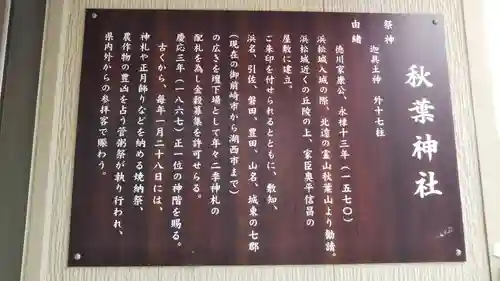 秋葉神社
祭神
迦具土神 外十七柱
由緒
徳川家康公、永禄十三年(一五七〇)
浜松城入城の際、北遠の霊山秋葉山より勧請。
浜松城近くの丘陵の上、家臣奥平信昌の
屋敷に建立。
ご朱印を付せられるとともに、敷知、
浜名、引佐、磐田、豊田、山名、城東の七郡
(現在の御前崎市から湖西市まで)
の広きを壇下場として年々二季神札の
配札を為し金穀募集を許可せらる。
慶応三年(一八六七)正一位の神階を賜る。
古くから、毎年一月二十八日には、
神札や正月飾りなどを納める焼納祭、
農作物の豊凶を占う管粥祭が執り行われ、
県内外からの参拝客で賑わう。